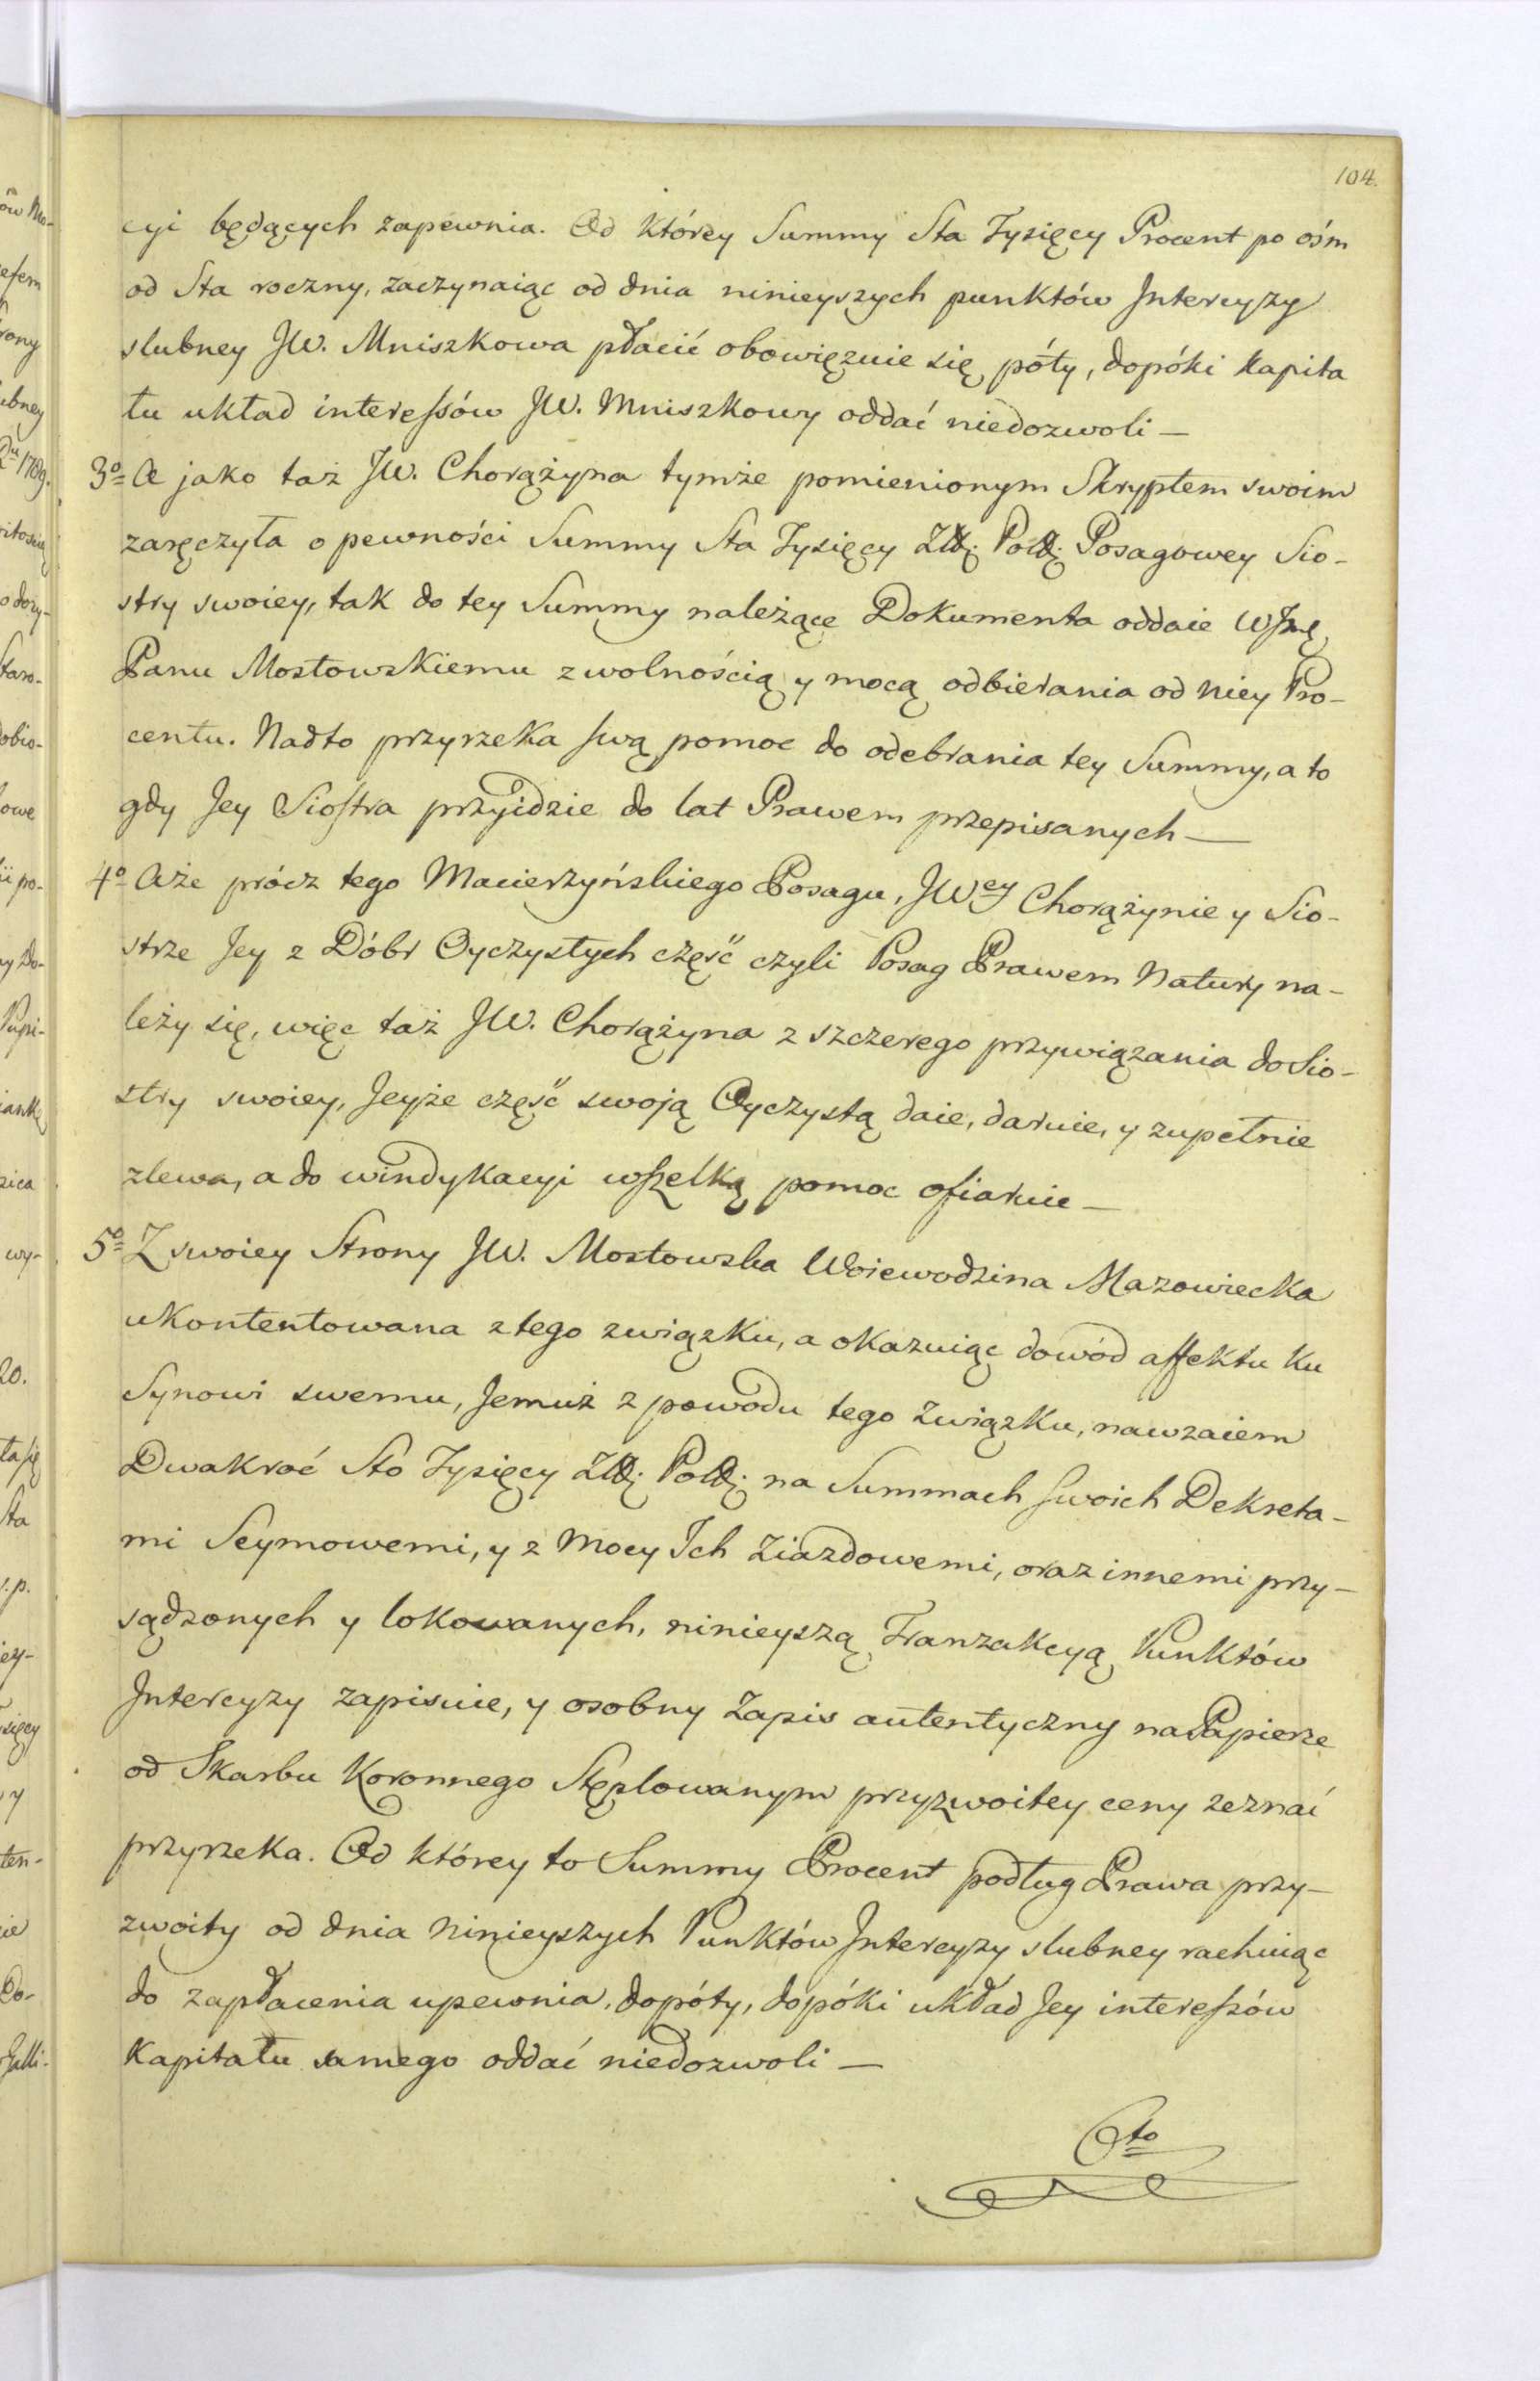 104.
cyi będących zapewnia. Od którey Summy Sta Tysięcy Procent po ośm
od Sta roczny, zaczynaiąc od dnia ninieyszych punktów Intercyzy
slubney JW. Mniszkowa płacić obowięzuie się póty, dopóki kapita
łu układ interessów JW. Mniszkowy oddać niedozwoli —
3o A jako taż JW. Chorążyna tymże pomienionym Skryptem swoim
zaręczyła o pewności Summy Sta Tysięcy Złł. Poll. Posagowey Sio-
stry swoiey, tak do tey Summy należące Dokumenta oddaie
Panu Mostowskiemu z wolnością y mocą odbierania od niey Pro-
centu. Nadto przyrzeka swą pomoc do odebrania tey Summy, a to
gdy Jey Siostra przyidzie do lat Prawem przepisanych —
4o Aże prócz tego Macierzyńskiego Posagu, JWey Chorążynie y Sio-
strze Jey z Dóbr Oyczystych część czyli Posag Prawem Natury na-
leży się, więc taż JW. Chorążyna z szczerego przywiązania do Sio-
stry swoiey, Jeyże część swoją Oyczystą daie, daruie, y zupełnie
zlewa, a do windykacyi wszelką pomoc ofiaruie —
5o Z swoiey Strony JW. Mostowska Woiewodzina Mazowiecka
ukontentowana z tego związku, a okazuiąc dowód affektu ku
Synowi swemu, Jemuż z powodu tego Związku, nawzaiem
Dwakroć Sto Tysięcy Złł. Poll. na Summach swoich Dekreta-
mi Seymowemi, y z Mocy Ich Ziazdowemi, oraz innemi przy-
sądzonych y lokowanych, ninieyszą Tranzakcyą Punktów
Intercyzy zapisuie, y osobny Zapis autentyczny na Papierze
od Skarbu Koronnego Stęplowanym przyzwoitey ceny zeznać
przyrzeka. Od którey to Summy Procent podług Prawa przy-
zwoity od dnia Ninieyszych Punktów Intercyzy slubney rachuiąc
do zapłacenia upewnia, dopóty, dopóki układ Jey interessów
Kapitału samego oddać niedozwoli —
6to